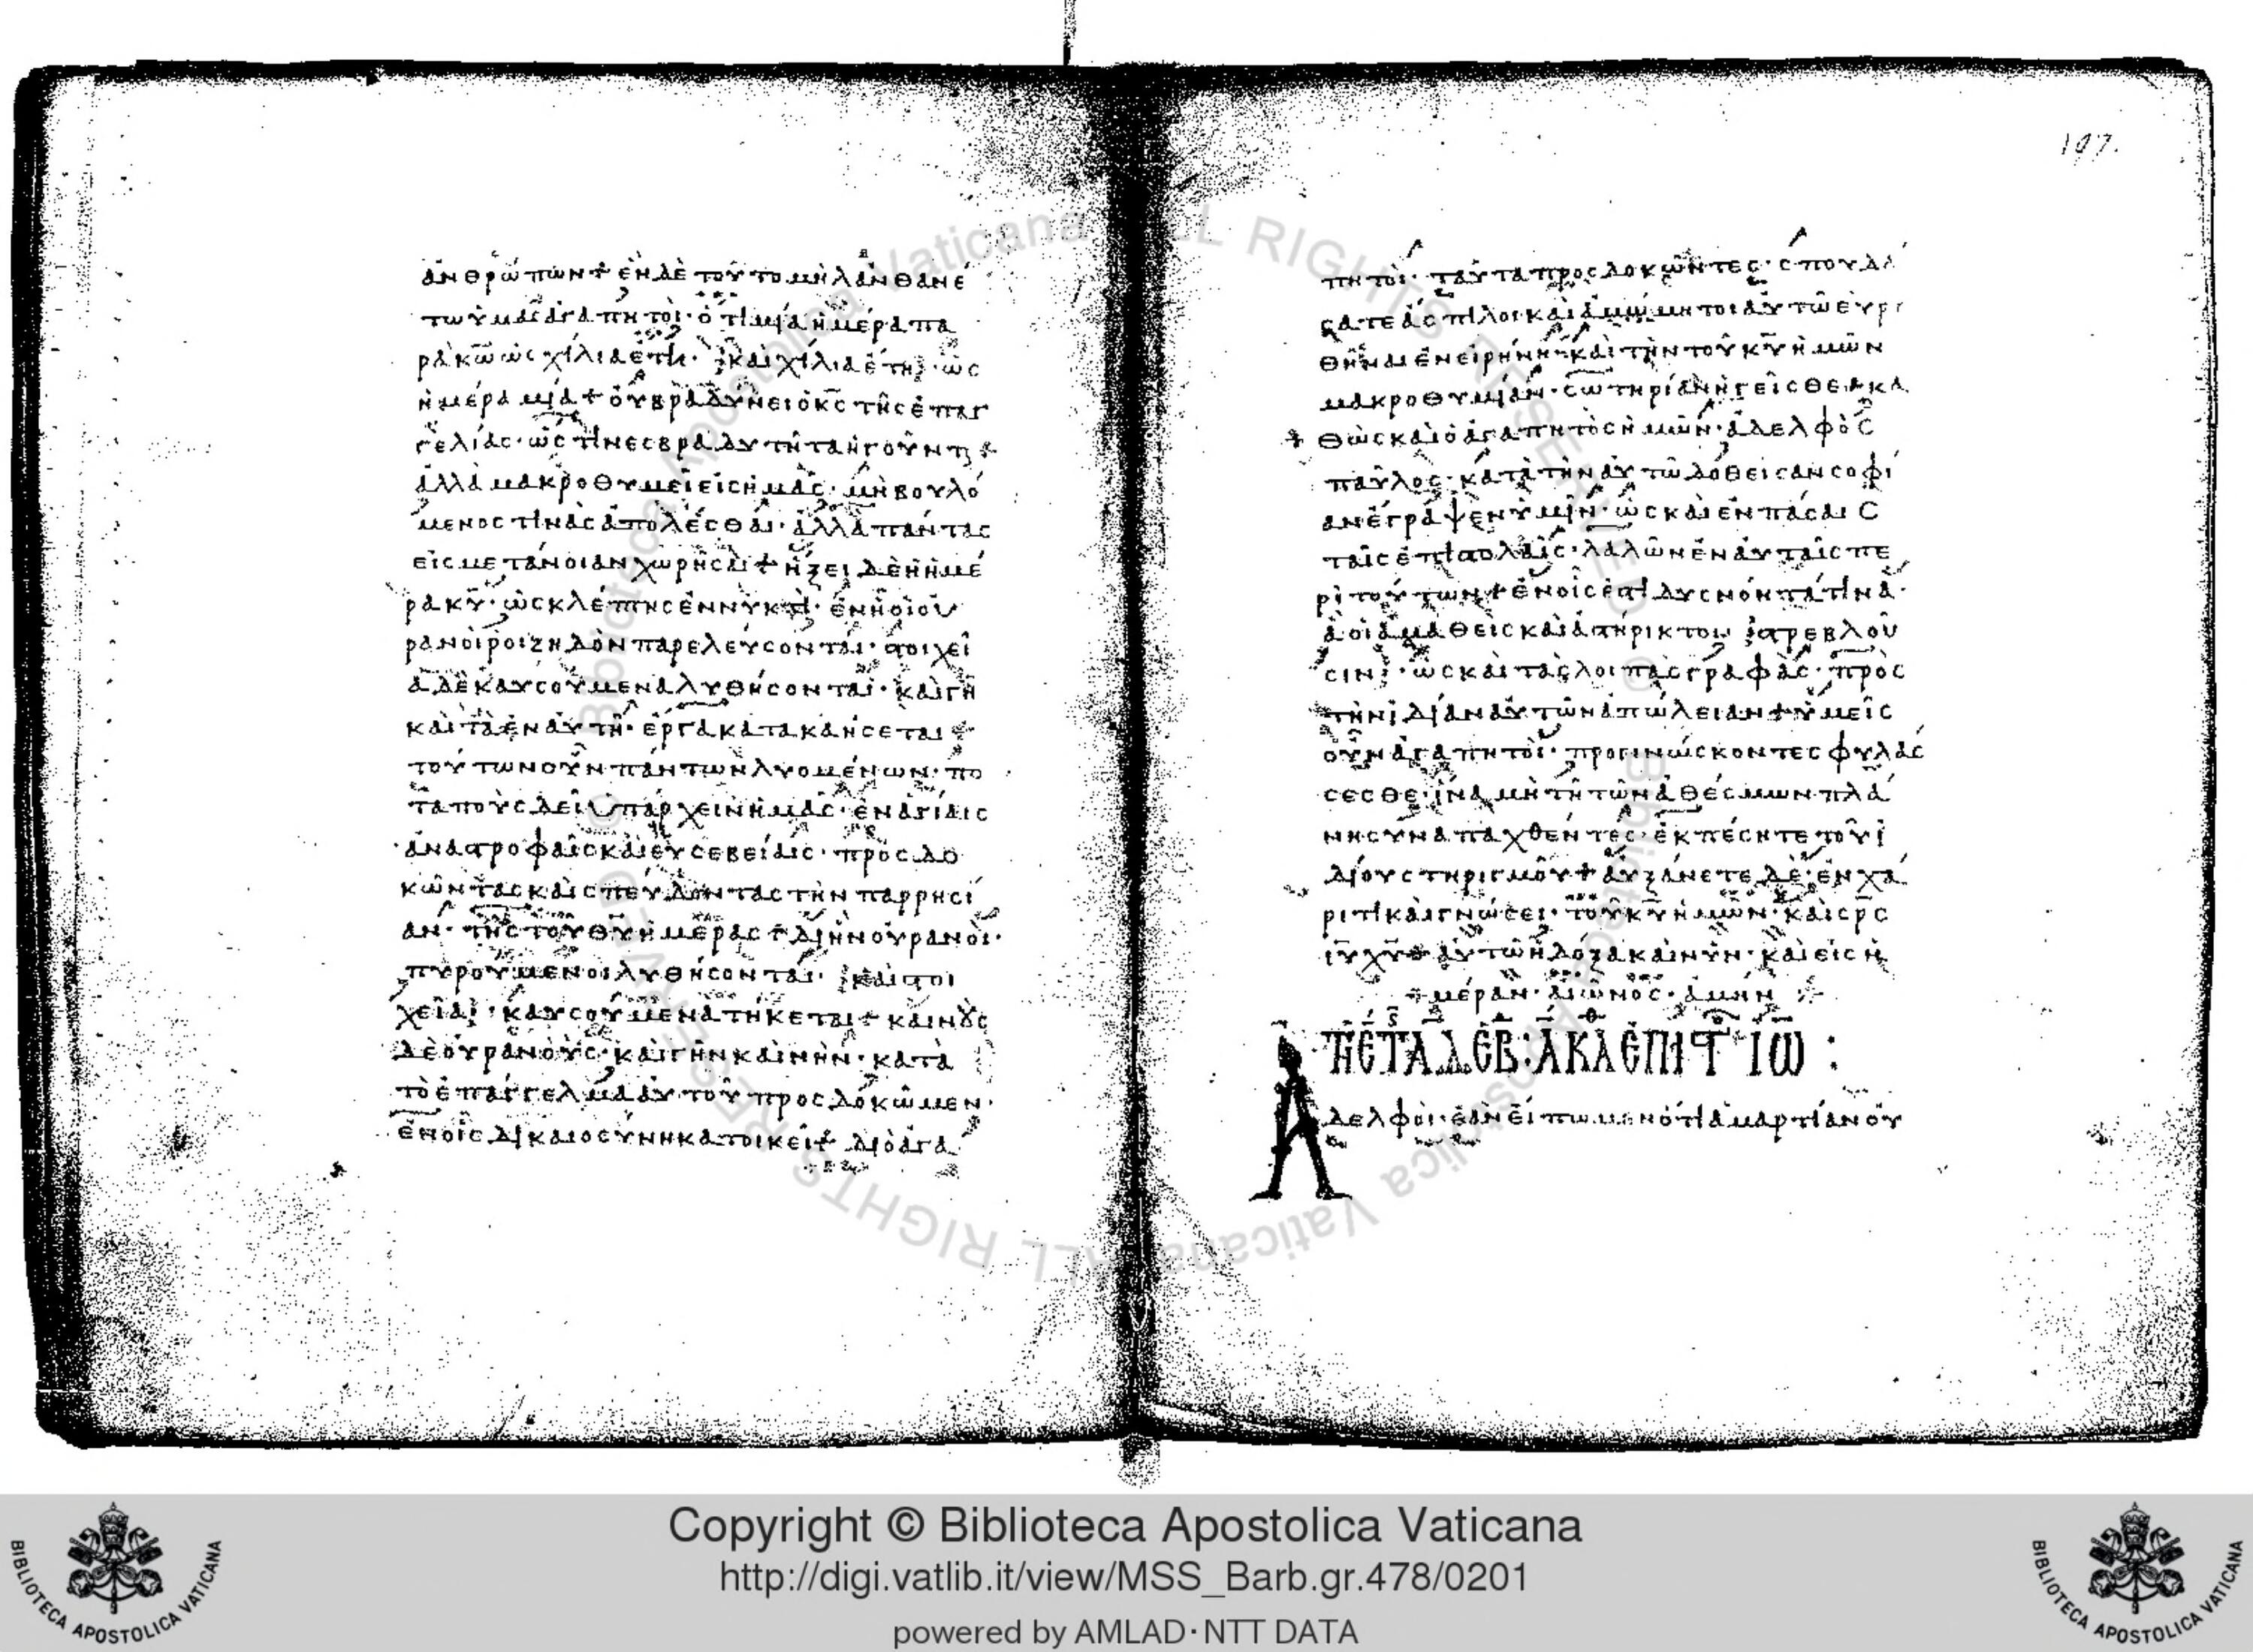 ἀνθρώπων + ἓν δὲ τοῦτο μὴ λανθανέ
τω ὑμᾶς ἀγαπητοί· ὅτι μία ἡμέρα πα
ρὰ κ̅ω̅ ὡς χίλια ἔτη· καὶ χίλια ἔτη· ὡς
ἡμέρα μία + οὐ βραδύνει ὁ κ̅ς̅ τῆς ἐπαγ
γελίας· ὥς τινες βραδυτῆτα ἡγοῦντ +
ἀλλὰ μακροθυμεῖ εἰς ἡμᾶς· μὴ βουλό
μενός τινας ἀπολέσθαι· ἀλλὰ πάντας
εἰς μετάνοιαν χωρῆσαι + ἥξει δὲ ἡ ἡμέ
ρα κ̅υ̅· ὡς κλέπτης ἐν νυκτί· ἐν ᾗ οἱ οὐ
ρανοὶ ροιζηδὸν παρελεύσονται· στοιχεῖ
α δὲ καυσούμενα λυθήσονται· καὶ γῆ
καὶ τὰ ἐν αὐτῇ· ἔργα κατακαήσεται +
τούτων οὖν πάντων λυομένων· πο
ταποὺς δεῖ ὑπάρχειν ἡμᾶς· ἐν ἁγίαις
ἀναστροφαῖς καὶ εὐσεβείαις· προσδο
κῶντας καὶ σπεύδοντας τὴν παρρησί
αν· τῆς τοῦ θ̅υ̅ ἡμέρας + δι' ἣν οὐρανοί·
πυρούμενοι λυθήσονται· καὶ στοι
χεῖα· καυσούμενα τήκεται + καινοὺς
δὲ οὐρανούς· καὶ γῆν καινὴν· κατὰ
τὸ ἐπάγγελμα αὐτοῦ προσδοκῶμεν·
ἐν οἷς δικαιοσύνη κατοικεῖ + διὸ ἀγα
197.
πητοί· ταῦτα προσδοκῶντες· σπουδά
σατε ἄσπιλοι καὶ ἀμώμητοι αὐτῷ εὑρε
θῆναι ἐν εἰρήνῃ· καὶ τὴν τοῦ κ̅υ̅ ἡμῶν
μακροθυμίαν· σωτηρίαν ἡγεῖσθε + κα
θὼς καὶ ὁ ἀγαπητὸς ἡμῶν· ἀδελφὸς
παῦλος· κατὰ τὴν αὐτῷ δοθεῖσαν σοφί
αν ἔγραψεν ὑμῖν· ὡς καὶ ἐν πάσαις
ταῖς ἐπιστολαῖς· λαλῶν ἐν αὐταῖς πε
ρὶ τούτων + ἐν οἷς ἐστὶ δυσνόητά τινα·
ἃ οἱ ἀμαθεῖς καὶ ἀστήρικτοι στρεβλοῦ
σιν· ὡς καὶ τὰς λοιπὰς γραφάς· πρὸς
τὴν ἰδίαν αὐτῶν ἀπώλειαν + ὑμεῖς
οὖν ἀγαπητοί· προγινώσκοντες φυλάσ
σεσθε· ἵνα μὴ τῇ τῶν ἀθέσμων πλά
νῃ συναπαχθέντες· ἐκπέσητε τοῦ ἰ
δίου στηριγμοῦ + αὐξάνετε δὲ· ἐν χά
ριτι καὶ γνώσει· τοῦ κ̅υ̅ ἡμῶν· καὶ σ̅ρ̅ς̅
ι̅υ̅ χ̅υ̅ + αὐτῷ ἡ δόξα καὶ νῦν· καὶ εἰς ἡ
μέραν· αἰῶνος· ἀμήν +
Ἀδελφοί· ἐὰν εἴπωμεν ὅτι ἁμαρτίαν οὐ
Copyright © Biblioteca Apostolica Vaticana
http://digi.vatlib.it/view/MSS_Barb.gr.478/0201
powered by AMLAD·NTT DATA